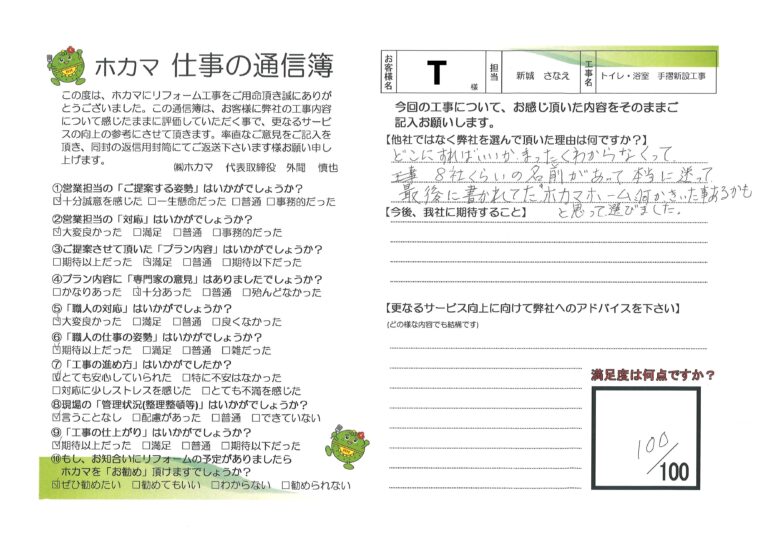 ホカマ 仕事の通信簿
この度は、ホカマにリフォーム工事をご用命頂き誠にありが
とうございました。この通信簿は、お客様に弊社の工事内容
について感じたままに評価していただく事で、更なるサービ
スの向上の参考にさせて頂きます。率直なご意見をご記入を
頂き、同封の返信用封筒にてご返送下さいます様お願い申し
上げます。
㈱ホカマ 代表取締役 外間 慎也
①営業担当の「ご提案する姿勢」はいかがでしょうか?
☑十分誠意を感じた □一生懸命だった □普通 □事務的だった
②営業担当の「対応」はいかがでしょうか?
☑大変良かった □満足 □普通 □事務的だった
③ご提案させて頂いた「プラン内容」はいかがでしょうか?
□期待以上だった ☑満足 □普通 □期待以下だった
④プラン内容に「専門家の意見」はありましたでしょうか?
□かなりあった ☑十分あった □普通 □殆んどなかった
⑤「職人の対応」はいかがでしょうか?
☑大変良かった □満足 □普通 □良くなかった
⑥「職人の仕事の姿勢」はいかがでしょうか?
☑期待以上だった □満足 □普通 □雑だった
⑦「工事の進め方」はいかがでしたか?
☑とても安心していられた □特に不安はなかった
□対応に少しストレスを感じた □とても不満を感じた
⑧現場の「管理状況(整理整頓等)」はいかがでしょうか?
☑言うことなし □配慮があった □普通 □できていない
⑨「工事の仕上がり」はいかがでしょうか?
☑期待以上だった □満足 □普通 □期待以下だった
⑩もし、お知合いにリフォームの予定がありましたら
ホカマを「お勧め」頂けますでしょうか?
☑ぜひ勧めたい □勧めてもいい □わからない □勧められない
お客様名 T 様 担当 新城 さなえ 工事名 トイレ・浴室 手摺新設工事
今回の工事について、お感じ頂いた内容をそのままご
記入お願いします。
【他社ではなく弊社を選んで頂いた理由は何ですか?】
どこにすればいいか、まったくわからなくって
工事 8社くらいの名前があって本当に迷って
最後に書かれてた"ホカマホーム何かきいた事あるかも
と思って選びました。
【今後、我社に期待すること】
【更なるサービス向上に向けて弊社へのアドバイスを下さい】
(どの様な内容でも結構です)
満足度は何点ですか?
100/100